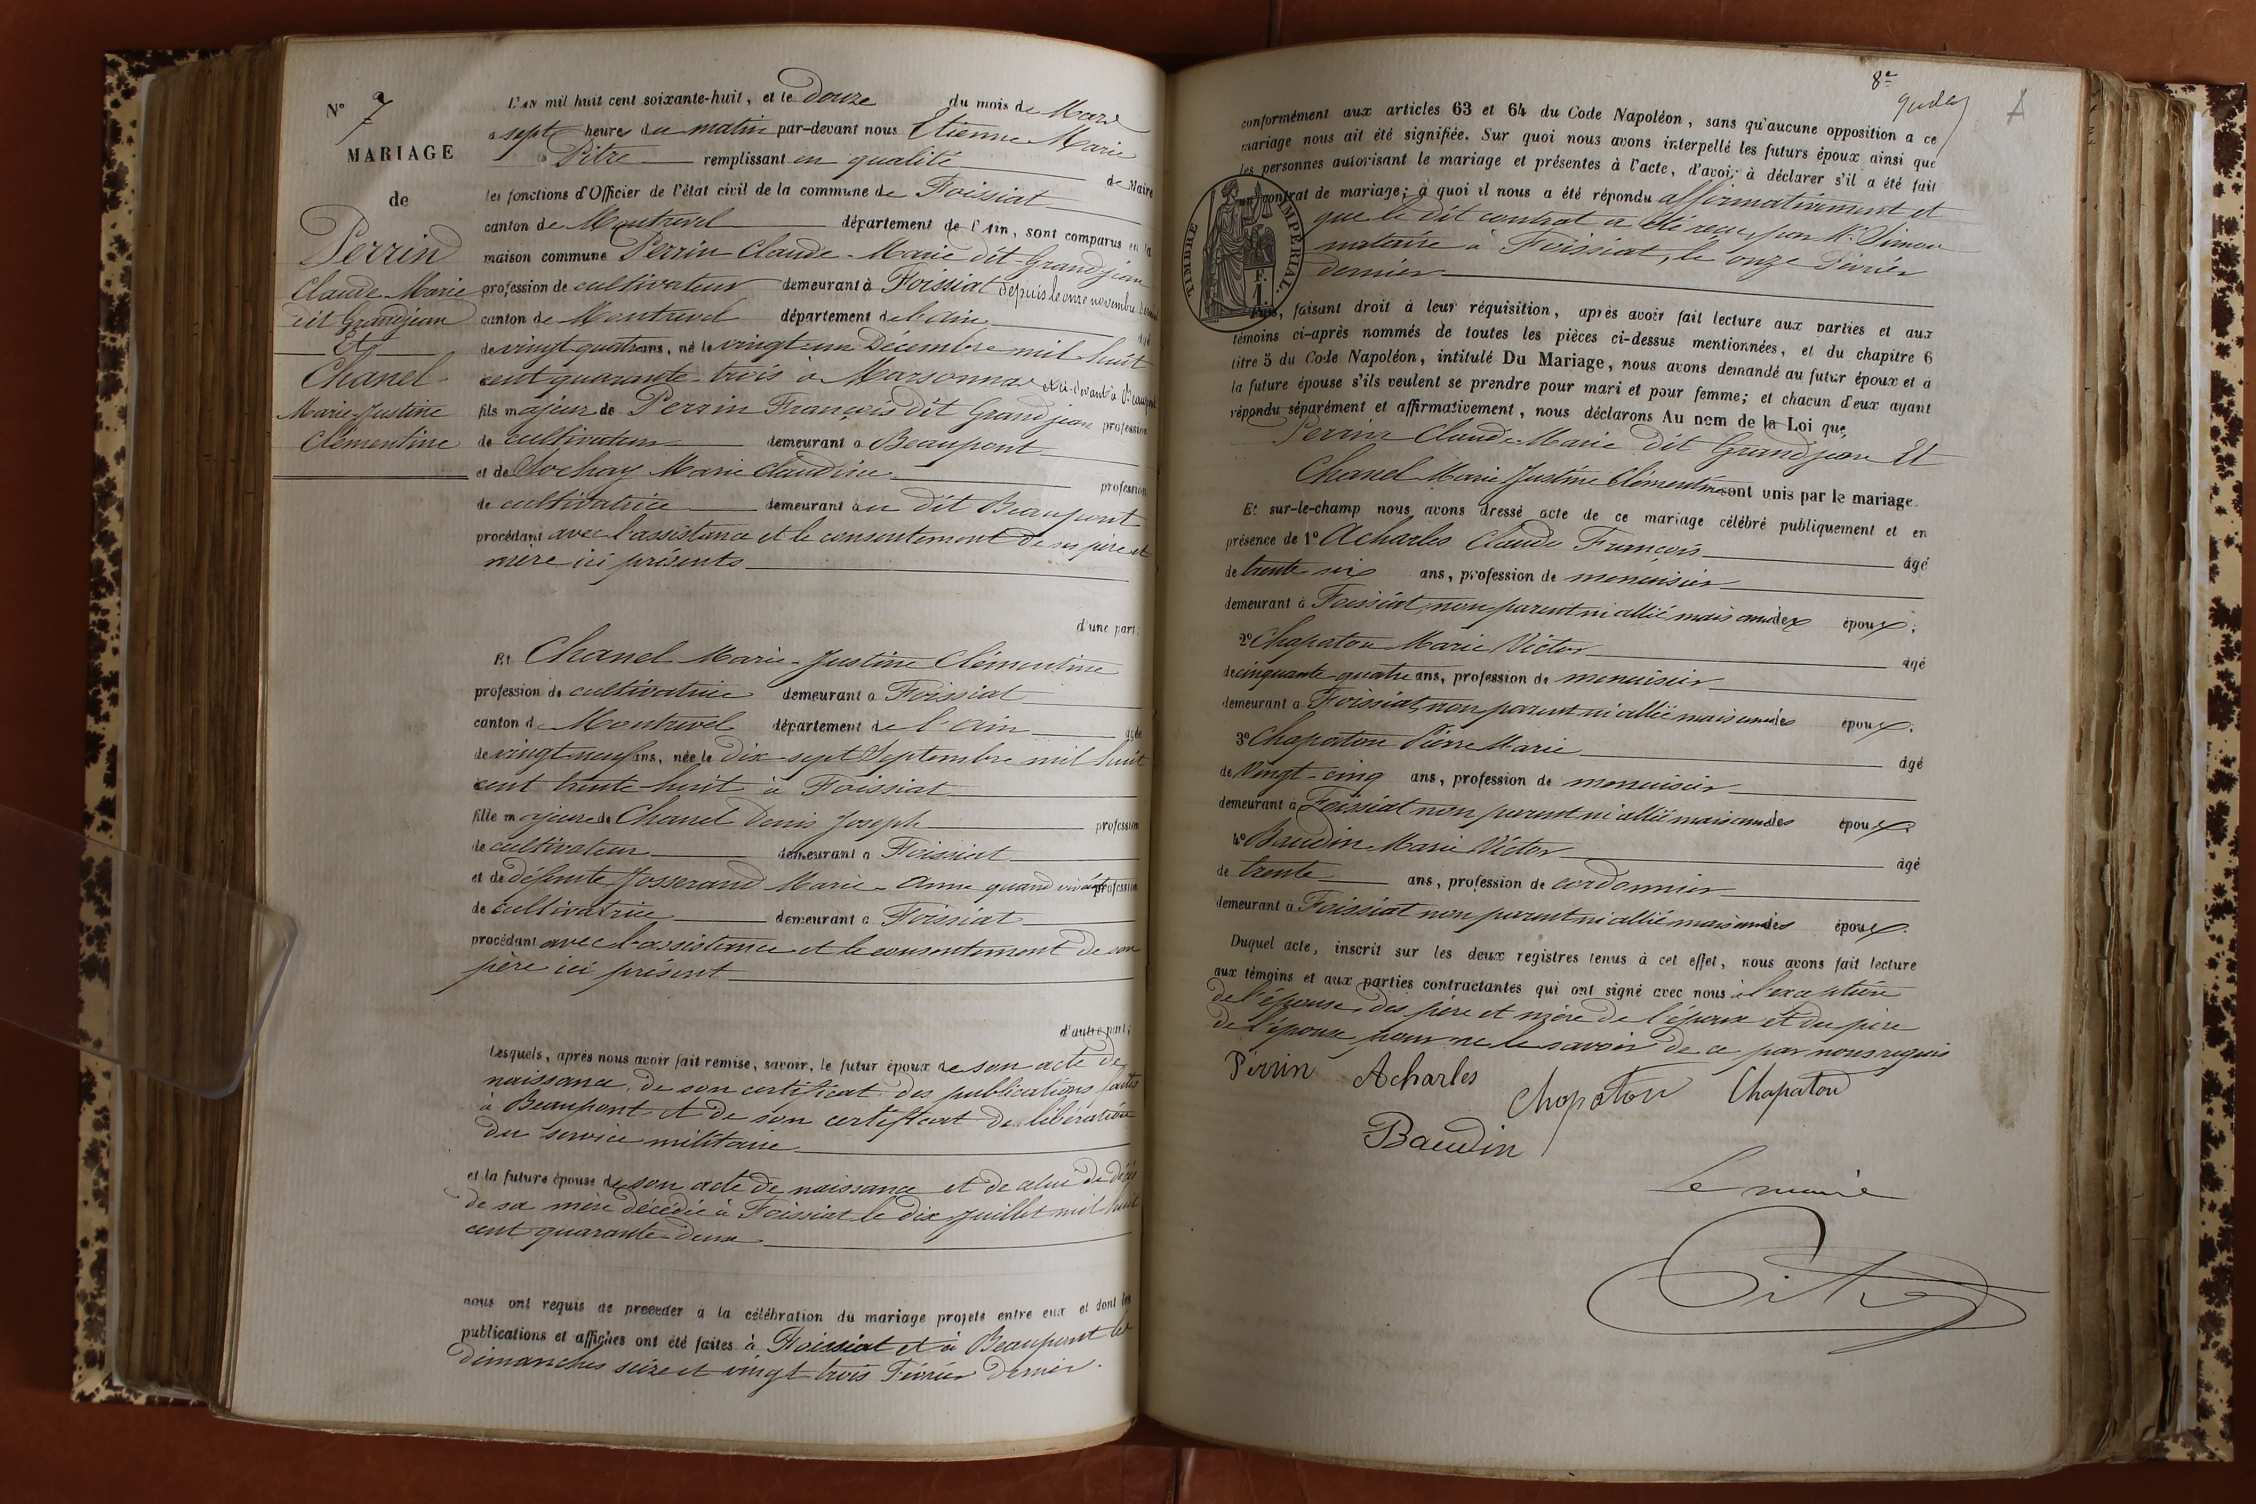 N° 7
MARIAGE
de
Perrin
Claude Marie
dit Grandjean
Et
Chanel
Marie Justine
Clémentine
L'AN mil huit cent soixante-huit, et le Douze du mois de Mars
a sept heures du matin par-devant nous Etienne Marie
Pitre remplissant en qualité de Maire
les fonctions d'Officier de l'état civil de la commune de Foissiat
canton de Montrevel département de l'Ain, sont comparus en la
maison commune Perrin Claude-Marie dit Grandjean
profession de cultivateur demeurant à Foissiat depuis le onze novembre dernier
canton de Montrevel département de l'ain âgé
de vingt quatre ans, né le vingt un Décembre mil huit
cent quarante-trois à Marsonnas et ci-devant à
fils majeur de Perrin François dit Grandjean profession
de cultivateur demeurant à Beaupont
et de Clochay Marie Claudine profession
de cultivatrice demeurant au dit Beaupont
procédant avec l'assistance et le consentement de ses père et
mère ici présents
d'une part;
Et Chanel Marie-Justine Clémentine
profession de cultivatrice demeurant à Foissiat
canton de Montrevel département de l'ain âgée
de vingt-neuf ans, née le dix-sept Septembre mil huit
cent trente-huit à Foissiat
fille majeure de Chanel Denis Joseph profession
de cultivateur demeurant à Foissiat
et de défunte Josserand Marie-Anne quand vivait profession
de cultivatrice demeurant à Foissiat
procédant avec l'assistance et le consentement de son
père ici présent
d'autre part;
Lesquels, après nous avoir fait remise, savoir, le futur époux de son acte de
naissance, de son certificat des publications faites
à Beaupont et de son certificat de libération
du service militaire
et la future épouse de son acte de naissance et de celui de décès
de sa mère décédée à Foissiat le dix Juillet mil huit
cent quarante-deux
nous ont requis de procéder à la célébration du mariage projeté entre eux et dont les
publications et affiches ont été faites à Foissiat et à Beaupont les
dimanches seize et vingt trois Février dernier.
8e
conformément aux articles 63 et 64 du Code Napoléon, sans qu'aucune opposition a ce
mariage nous ait été signifiée. Sur quoi nous avons interpellé les futurs époux ainsi que
les personnes autorisant le mariage et présentes à l'acte, d'avoir à déclarer s'il a été fait
un contrat de mariage; à quoi il nous a été répondu affirmativement et
que le dit contrat a été reçu par Me Simon
notaire à Foissiat, le onze Février
dernier
TIMBRE IMPÉRIAL.
F.
1.
Puis, faisant droit à leur réquisition, après avoir fait lecture aux parties et aux
témoins ci-après nommés de toutes les pièces ci-dessus mentionnées, et du chapitre 6
titre 5 du Code Napoléon, intitulé Du Mariage, nous avons demandé au futur époux et à
la future épouse s'ils veulent se prendre pour mari et pour femme; et chacun d'eux ayant
répondu séparément et affirmativement, nous déclarons Au nom de la Loi que,
Perrin Claude-Marie dit Grandjean Et
Chanel Marie Justine Clémentine sont unis par le mariage.
Et sur-le-champ nous avons dressé acte de ce mariage célébré publiquement et en
présence de 1° Acharles Claude François âgé
de trente six ans, profession de menuisier
demeurant à Foissiat, non parent ni allié mais ami des époux;
2° Chapaton Marie Victor âgé
de cinquante-quatre ans, profession de menuisier
demeurant à Foissiat, non parent ni allié mais ami des époux;
3° Chapaton Pierre Marie âgé
de Vingt-cinq ans, profession de menuisier
demeurant à Foissiat non parent ni allié mais ami des époux;
4° Baudin Marie Victor âgé
de trente ans, profession de cordonnier
demeurant à Foissiat non parent ni allié mais ami des époux.
Duquel acte, inscrit sur les deux registres tenus à cet effet, nous avons fait lecture
aux témoins et aux parties contractantes qui ont signé avec nous à l'exception
de l'épouse, des père et mère de l'époux et du père
de l'épouse, pour ne le savoir de ce par nous requis
Perrin Acharles Chapaton Chapaton
Baudin
Le maire
Pitre